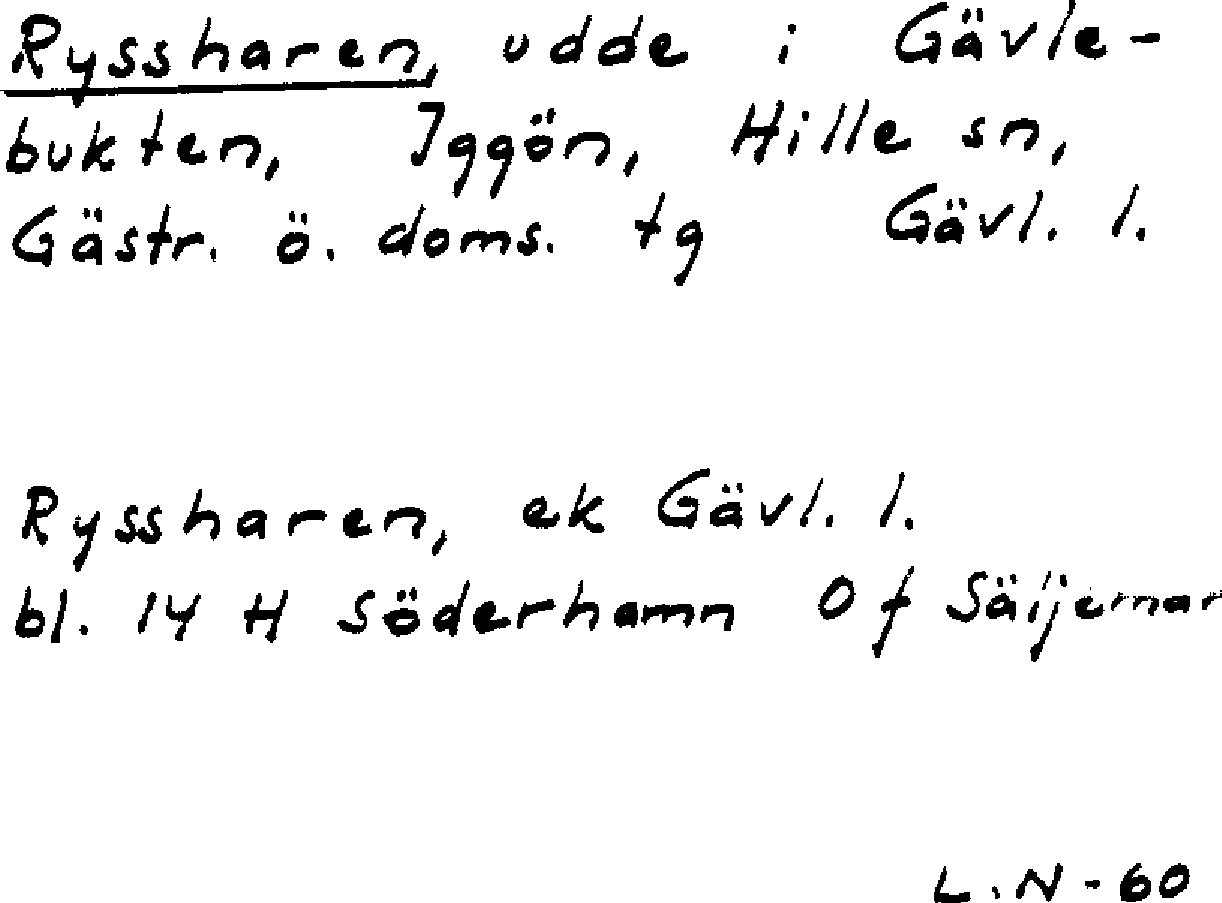 Ryssharen, udde i Gävle-
bukten, Iggön, Hille sn,
Gästr. ö. doms. tg Gävl. l.
Ryssharen, ek Gävl. l.
bl. 14 H Söderhamn O f
L.N-60